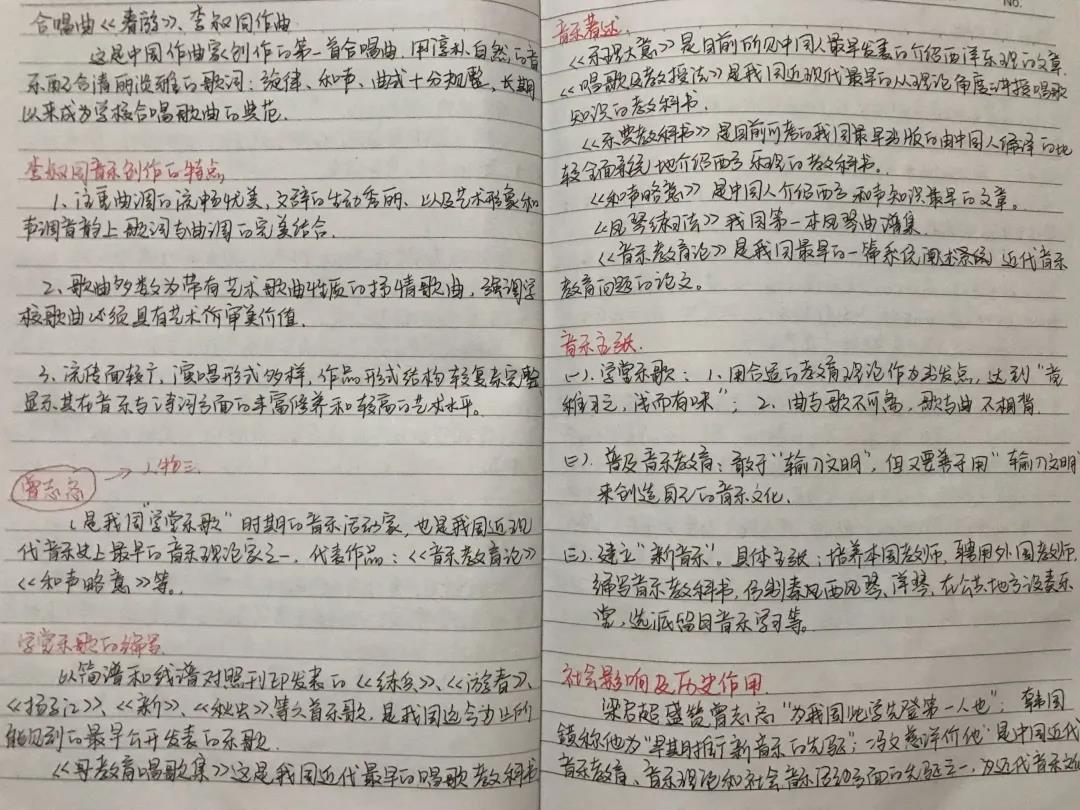 合唱曲《春游》、李叔同作曲
这是中国作曲家创作的第一首合唱曲,用淳朴、自然的音
乐配合清丽淡雅的歌词;旋律、和声、曲式十分规整,长期
以来成为学校合唱歌曲的典范.
李叔同音乐创作的特点
1、注重曲调的流畅优美、文辞的生动秀丽、以及艺术形象和
声调音韵上歌词与曲调的完美结合.
2、歌曲多数为带有艺术歌曲性质的抒情歌曲,强调学
校歌曲必须具有艺术价审美价值.
3、流传面较广,演唱形式多样,作品形式结构较复杂完整
显示其在音乐与诗词方面的丰富修养和较高的艺术水平。
曾志忞 → 人物三.
是我国“学堂乐歌”时期的音乐活动家,也是我国近现
代音乐史上最早的音乐理论家之一,代表作品:《音乐教育论》
《和声略意》等。
学堂乐歌的编写
以简谱和线谱对照刊印发表的《练兵》、《游春》、
《扬子江》、《新》、《秋虫》等六首乐歌,是我国迄今为止所
能见到的最早公开发表的乐歌.
《教育唱歌集》这是我国近代最早的唱歌教科书
No.
音乐著述.
《乐理大意》是目前所见中国人最早发表的介绍西洋乐理的文章.
《唱歌及教授法》是我国近现代最早的从理论角度讲授唱歌
知识的教科书.
《乐典教科书》是目前可考的我国最早出版的由中国人编译的比
较全面系统地介绍西方乐理的教科书。
《和声略意》是中国人介绍西方和声知识最早的文章。
《风琴练习法》我国第一本风琴曲谱集
《音乐教育论》是我国最早的一篇系统阐述系统近代音乐
教育问题的论文。
音乐主张.
(一). 学堂乐歌:1、用合适的教育理论作为出发点,达到“童
稚习之,浅而有味”;2、曲与歌不可离,歌与曲不相背.
(二). 普及音乐教育:敢于“输入文明”,但又要善于用“输入文明”
来创造自己的音乐文化.
(三). 建立“新音乐”。具体主张:培养本国教师,聘用外国教师,
编写音乐教科书,仿制奏风西风琴、洋琴,在公共地方设奏乐
堂,选派留日音乐学习等。
社会影响及历史作用.
梁启超盛赞曾志忞“为我国此学先登第一人也”;韩国
鐄称他为“早期推行新音乐的先驱”;冯文慈评价他“是中国近代
音乐教育、音乐理论和社会音乐活动方面的先驱之一,为近代音乐文化